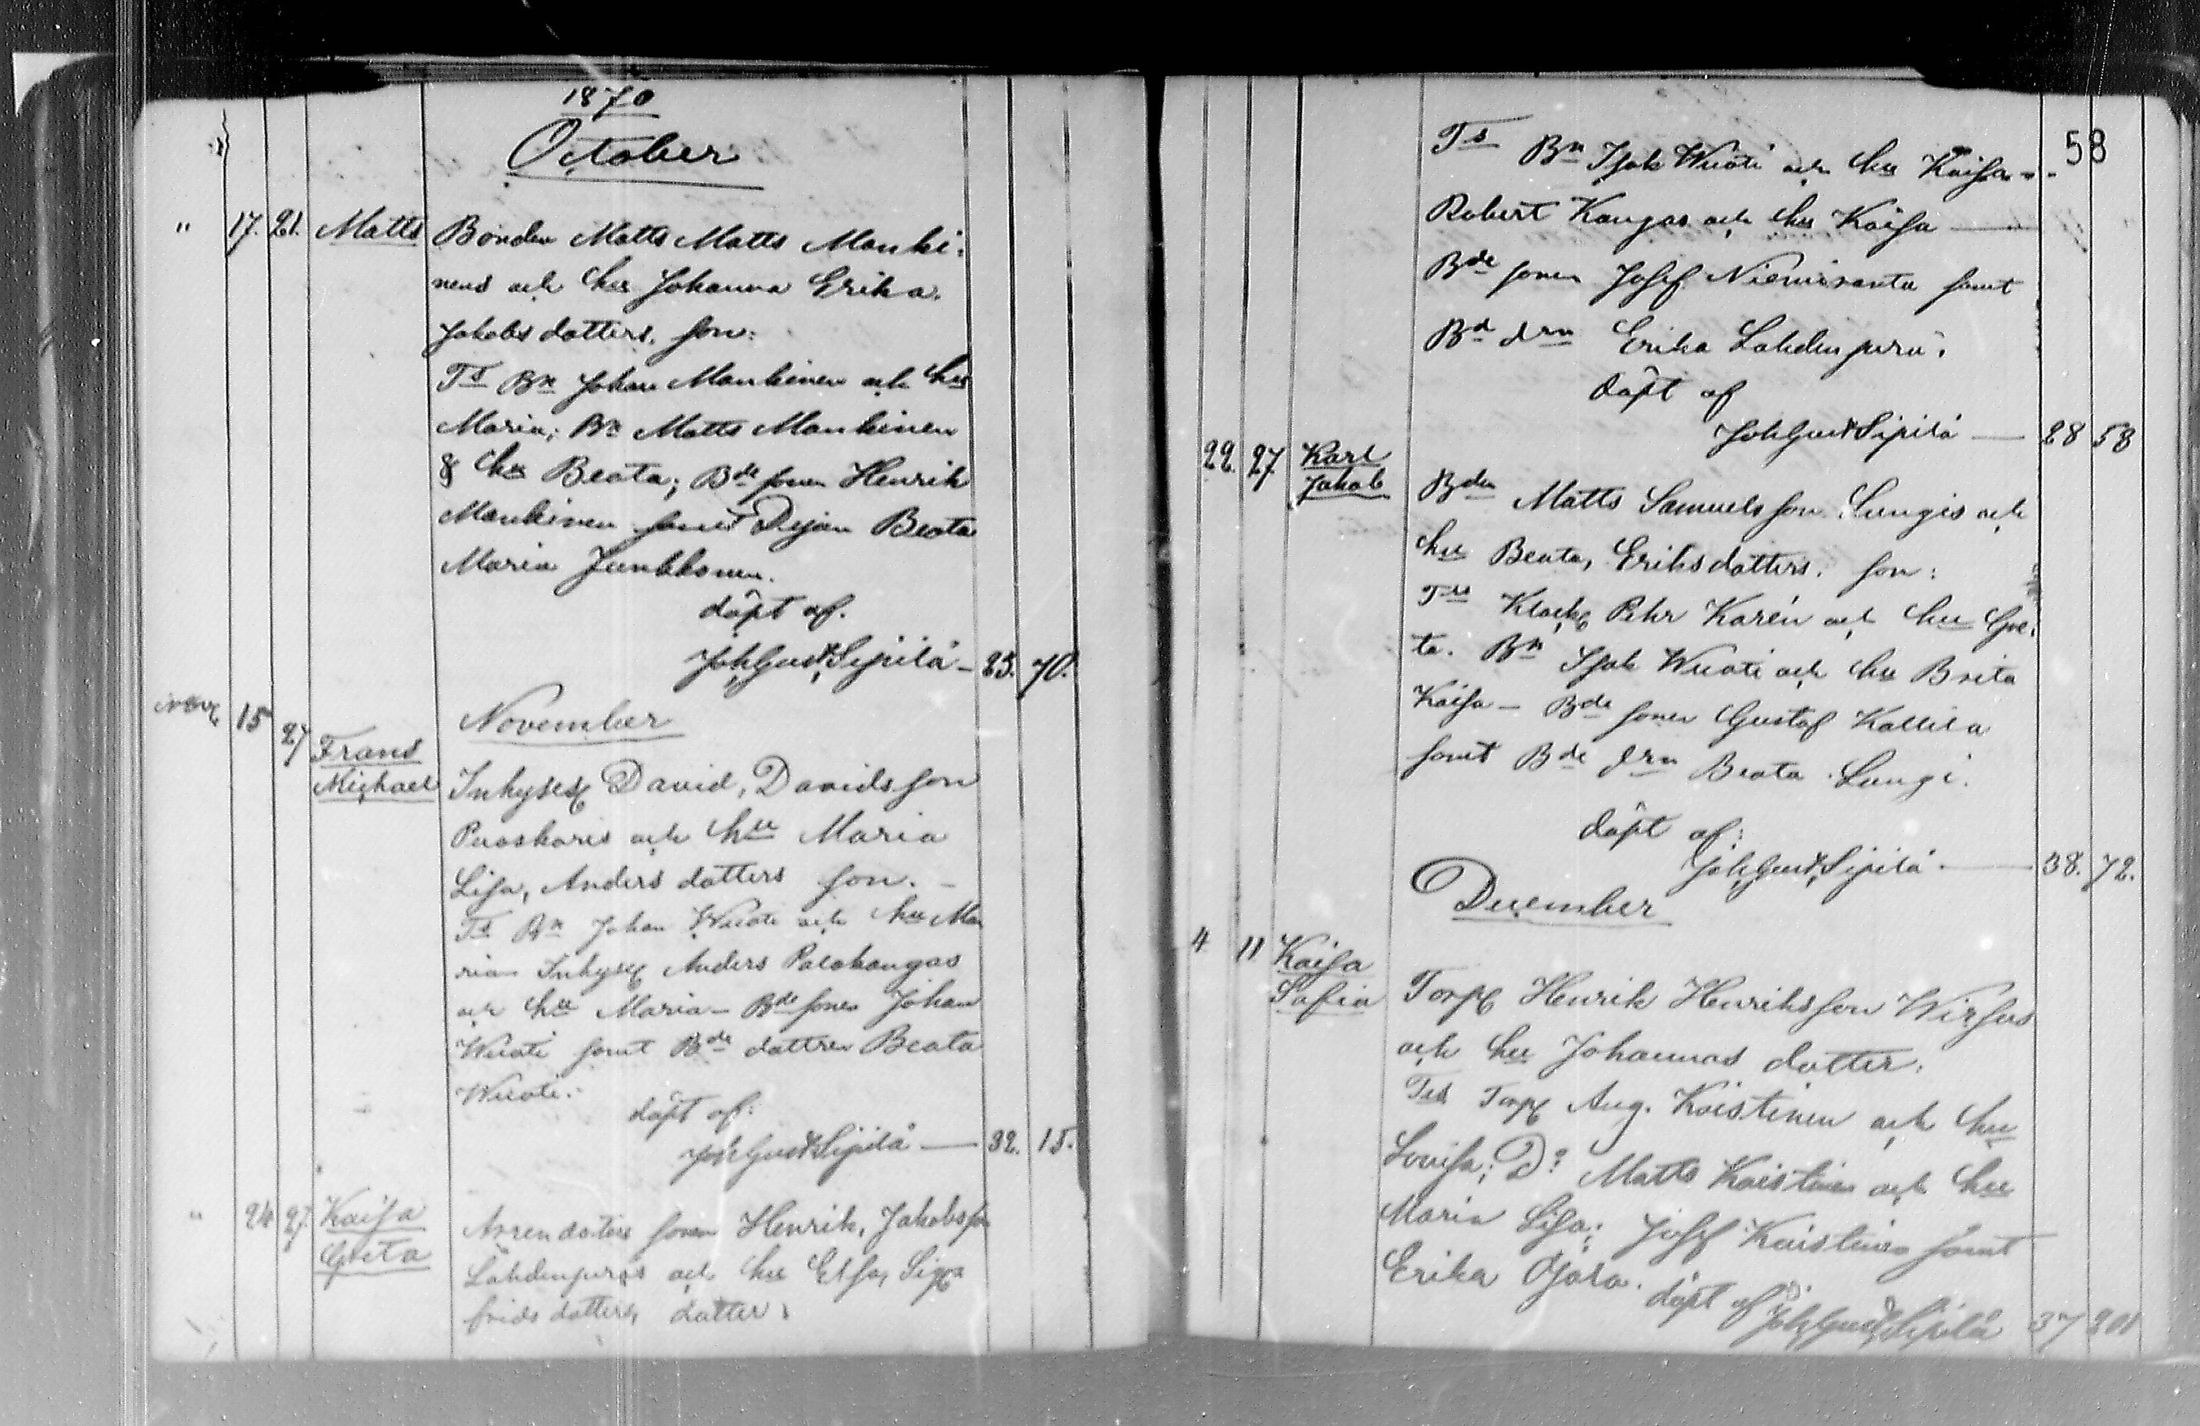 1870
October
" 17. 21. Matts Bonden Matts Matts Manki-
nens och hu Johanna Erika
Jakobsdotters. son:
Ts Bn Johan Mankinen och hu
Maria; Bn Matts Mankinen
& hu Beata; Bde sonen Henrik
Mankinen samt Pigan Beata
Maria Junkkonen.
döpt af.
Joh Gust Sipilä — 25. 70.
November
15 27 Frans
Michael Inhyses David, Davidsson
Puoskaris och hu Maria
Lisa, Anders dotters son.
Ts Bn Johan Wuoti och hu Ma
ria Inhyses Anders Palokangas
och hu Maria — Bde sonen Johan
Wuoti samt Bde dottren Beata
Wuoti.
döpt af:
Joh Gust Sipilä — 32. 15.
" 24 27. Kaisa
Greta Arrendators sonen Henrik, Jakobsson
Lahdenperäs och hu Elsa, Sig
frids dotters, dotter:
58
Ts Bn Isak Wuoti och hu Kaisa
Robert Kangas och hu Kaisa —
Bde sonen Josef Niemiranta samt
Bd drn Erika Lahdenperä.
döpt af
Joh Gust Sipilä — 28 58
22. 27. Karl
Jakob Bden Matts Samuelsson Sungis och
hu Beata, Eriksdotters. son:
Ts Klock Pehr Karén och hu Gre-
ta. Bn Isak Wuoti och hu Brita
Kaisa — Bde sonen Gustaf Kallila
samt Bde drn Beata Sungi.
döpt af:
Joh Gust Sipilä. — 38. 72.
December
4 11 Kaisa
Sofia Torp Henrik Henriksson Wirsus
och hu Johannas dotter.
Ts Torp Aug. Koistinen och hu
Lovisa; Do Matts Koistinen och hu
Maria Lisa; Josef Koistinen samt
Erika Ojala. döpt af
Joh Gust Sipilä 37 201